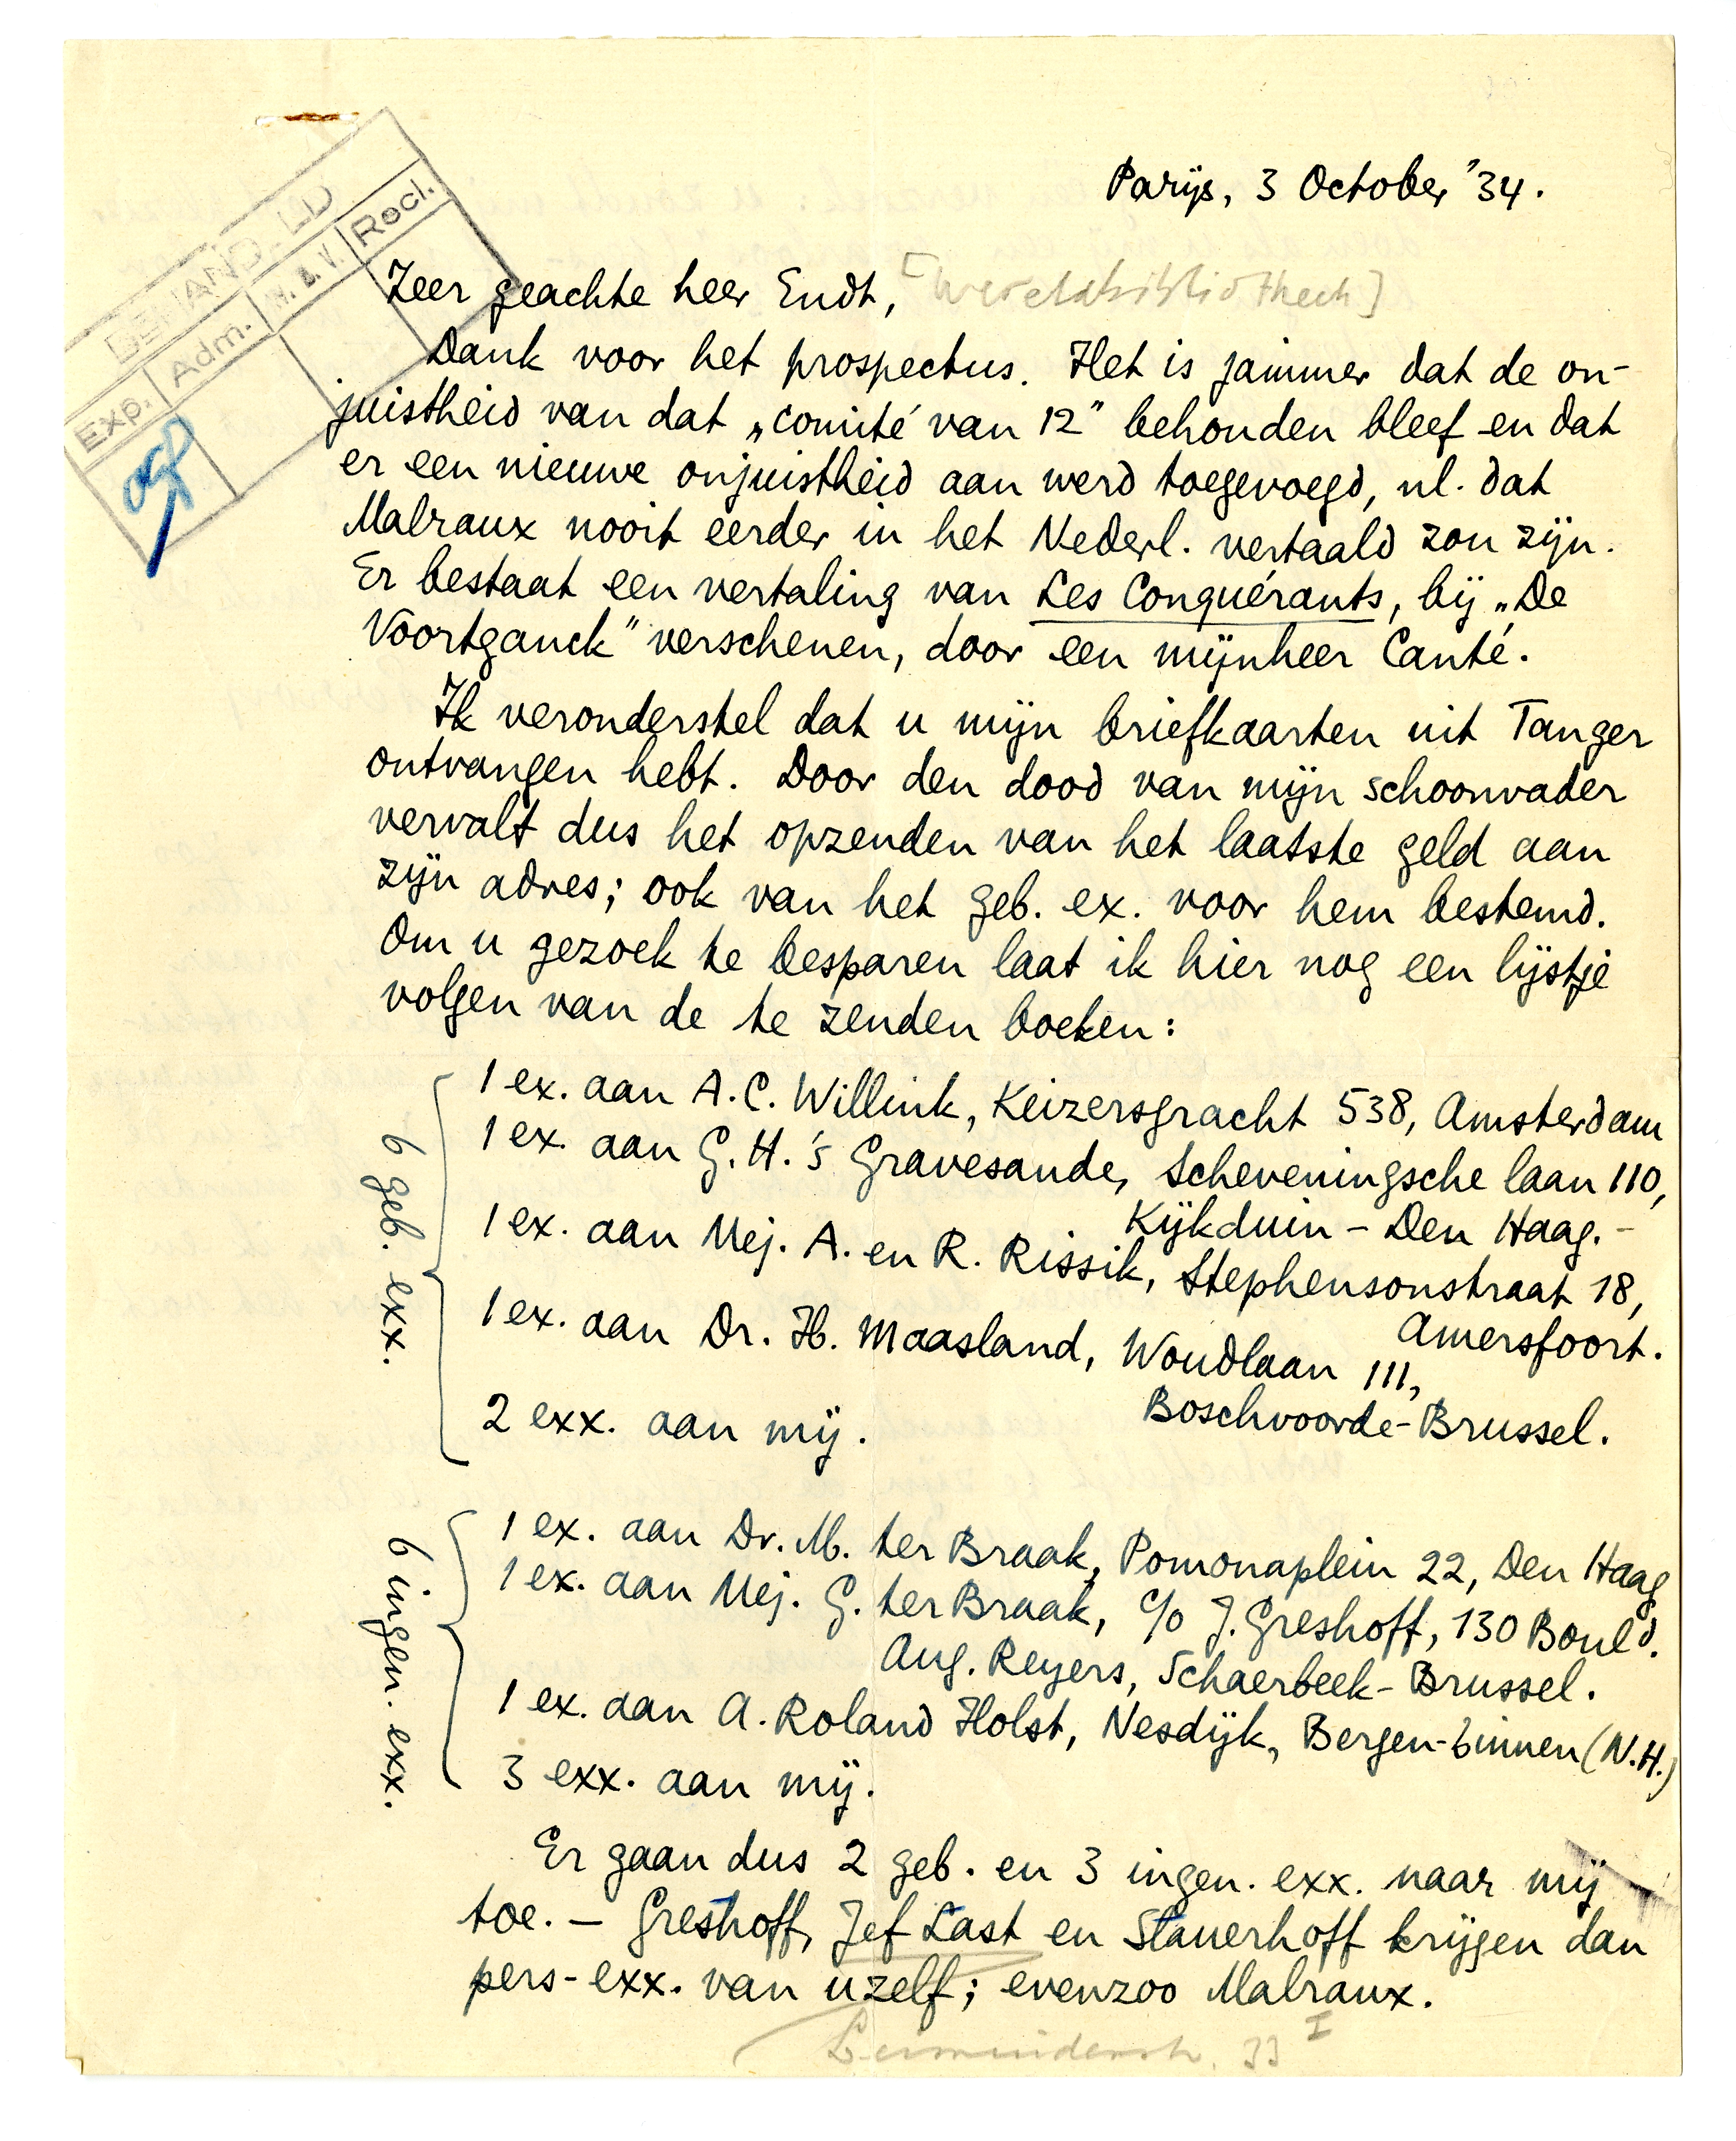 BEHAND. LD
Exp. Adm. N. & V. Recl.
Parijs, 3 October '34.
Zeer geachte heer Endt, [Wereldbibliotheek]
Dank voor het prospectus. Het is jammer dat de on-
juistheid van dat „comité van 12” behouden bleef en dat
er een nieuwe onjuistheid aan werd toegevoegd, nl. dat
Malraux nooit eerder in het Nederl. vertaald zou zijn.
Er bestaat een vertaling van Les Conquérants, bij „De
Voortganck” verschenen, door een mijnheer Canté.
Ik veronderstel dat u mijn briefkaarten uit Tanger
ontvangen hebt. Door den dood van mijn schoonvader
vervalt dus het opzenden van het laatste geld aan
zijn adres; ook van het geb. ex. voor hem bestemd.
Om u gezoek te besparen laat ik hier nog een lijstje
volgen van de te zenden boeken:
6 geb. exx.
1 ex. aan A.C. Willink, Keizersgracht 538, Amsterdam
1 ex. aan G.H. 's Gravesande, Scheveningsche laan 110,
Kijkduin - Den Haag. -
1 ex. aan Mej. A. en R. Rissik, Stephensonstraat 18,
Amersfoort.
1 ex. aan Dr. H. Maasland, Woudlaan 111,
Boschvoorde - Brussel.
2 exx. aan mij.
6 ingen. exx.
1 ex. aan Dr. M. ter Braak, Pomonaplein 22, Den Haag
1 ex. aan Mej. G. ter Braak, c/o J. Greshoff, 130 Bould.
Aug. Reyers, Schaerbeek - Brussel.
1 ex. aan A. Roland Holst, Nesdijk, Bergen-binnen (N.H.)
3 exx. aan mij.
Er gaan dus 2 geb. en 3 ingen. exx. naar mij
toe. — Greshoff, Jef Last en Slauerhoff krijgen dan
pers-exx. van uzelf; evenzoo Malraux.
33 I